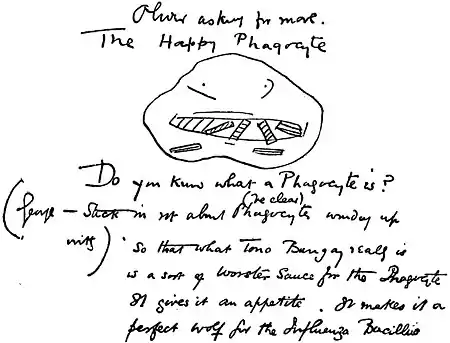 Oliver asking for more.
The Happy Phagocyte
Do you know what a Phagocyte is?
(George — Stick in st about Phagocytes (re clear) wonday up
with)
So that what Tono Bungay really is
is a sort of Worster Sauce for the Phagocyte
It gives it an appetite. It makes it a
perfect wolf for the Influenza Bacillus